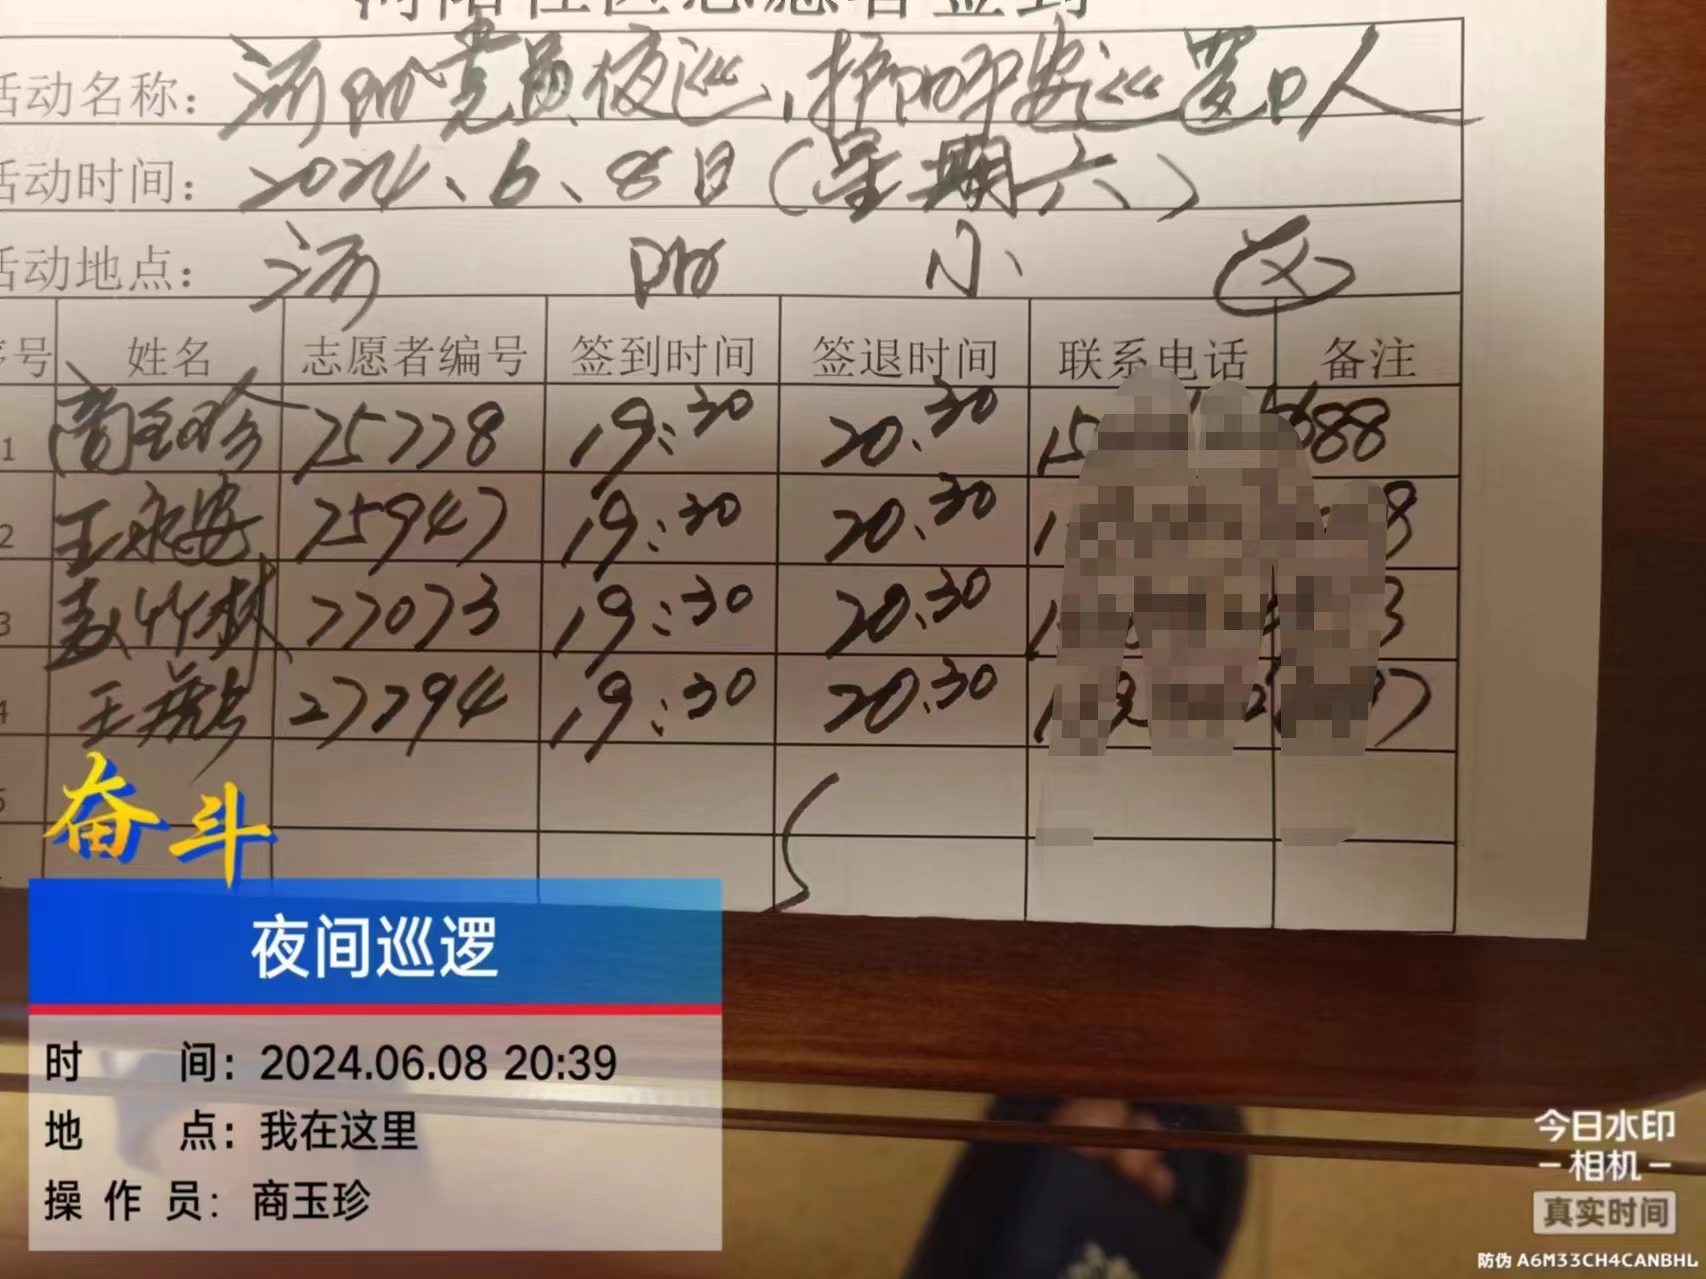 社区志愿者签到
活动名称：河阳党员夜巡，护畔平安巡逻人
活动时间：2024、6、8日（星期六）
活动地点：河阳小区
序号 姓名 志愿者编号 签到时间 签退时间 联系电话 备注
1 商玉珍 25778 19:30 20.30 15 688
2 王永安 25947 19:30 20.30 1 8
3 竹林 27073 19:30 20.30 1 3
4 王 27294 19:30 20.30 1 7
5
奋斗
夜间巡逻
时间：2024.06.08 20:39
地点：我在这里
操作员：商玉珍
今日水印
-相机-
真实时间
防伪 A6M33CH4CANBHL